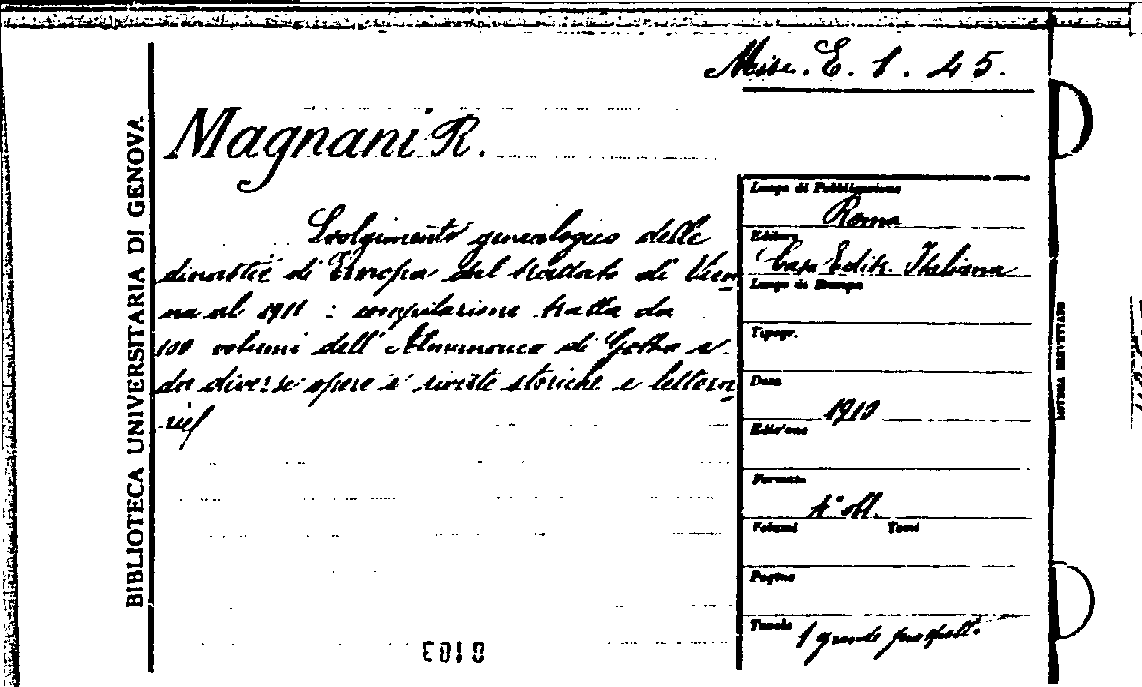 Misc. E. 1. 45.
BIBLIOTECA UNIVERSITARIA DI GENOVA
Magnani R.
Svolgimento genealogico delle
dinastie di Europa dal trattato di Vien
na al 1911 : compilazione tratta da
100 volumi dell'Almanacco di Gotha e
da diverse opere e riviste storiche e lettera
rie
Luogo di Pubblicazione
Roma
Editore
Casa Edit. Italiana
Luogo di Stampa
Tipogr.
Data
1910
Edizione
Formato
4° obl.
Volumi Tomi
Pagine
Tavole 1 grande prospett.
0103